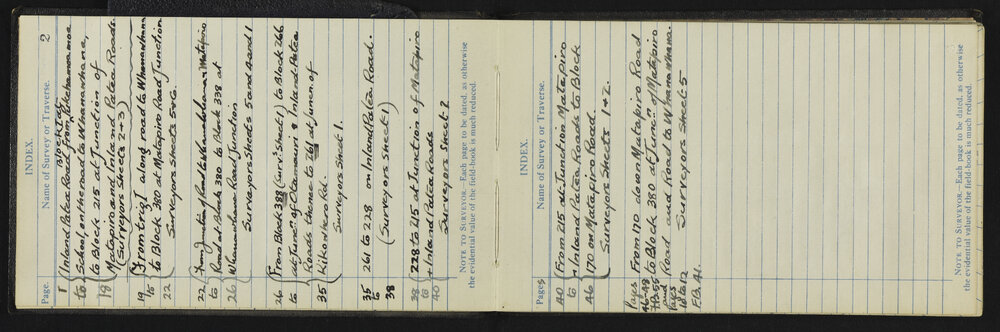 INDEX. 2
Page. Name of Survey or Traverse.
1 Block 7 at
to Inland Patea Road from Pukehamoamoa
School, on the road to Whanawhana,
to Block 215 at Junction of
18 Matapiro and Inland Patea Roads
(Surveyors Sheets 2+3)
19 From trig I along road to Whanawhana
to to Block 380 at Matapiro Road Junction
22 Surveyors Sheets 5+6.
22 From Junction of Road to Whanawhana Matapiro
to Road at Block 380 to Block 338 at
26 Whanawhana Road Junction
Surveyors Sheets 5 and 4 and 1
26 From Block 388 (Surv. Sheet 1) to Block 266
to at Junc of Otamauri & Inland-Patea
Roads thence to 261 at Juncn. of
35 Kikowhero Rd.
Surveyors Sheet 1.
35 261 to 228 on Inland Patea Road.
to
38 (Surveyors Sheet 1)
38 228 to 215 at Junction of Matapiro
to + Inland Patea Roads
40 Surveyors Sheet 2
NOTE TO SURVEYOR.—Each page to be dated, as otherwise
the evidential value of the field-book is much reduced.
INDEX.
Pages Name of Survey or Traverse.
40 From 215 at Junction Matapiro
to + Inland Patea Roads to Block
46 170 on Matapiro Road.
Surveyors Sheets 1+2.
Pages From 170 down Matapiro Road
46-48 to Block 380 at Juncn of Matapiro
and Road and Road to Whanawhana.
Pages Surveyors Sheet 5
10 to 12
F.B. 41.
NOTE TO SURVEYOR.—Each page to be dated, as otherwise
the evidential value of the field-book is much reduced.